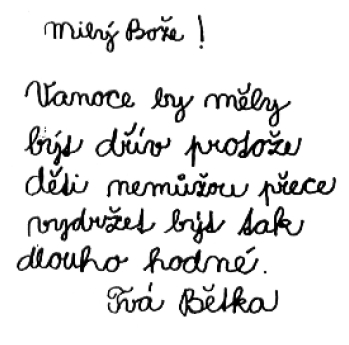 Milý Bože!
Vanoce by měly
být dřív protože
děti nemůžou přece
vydržet být tak
dlouho hodné.
Tvá Bětka